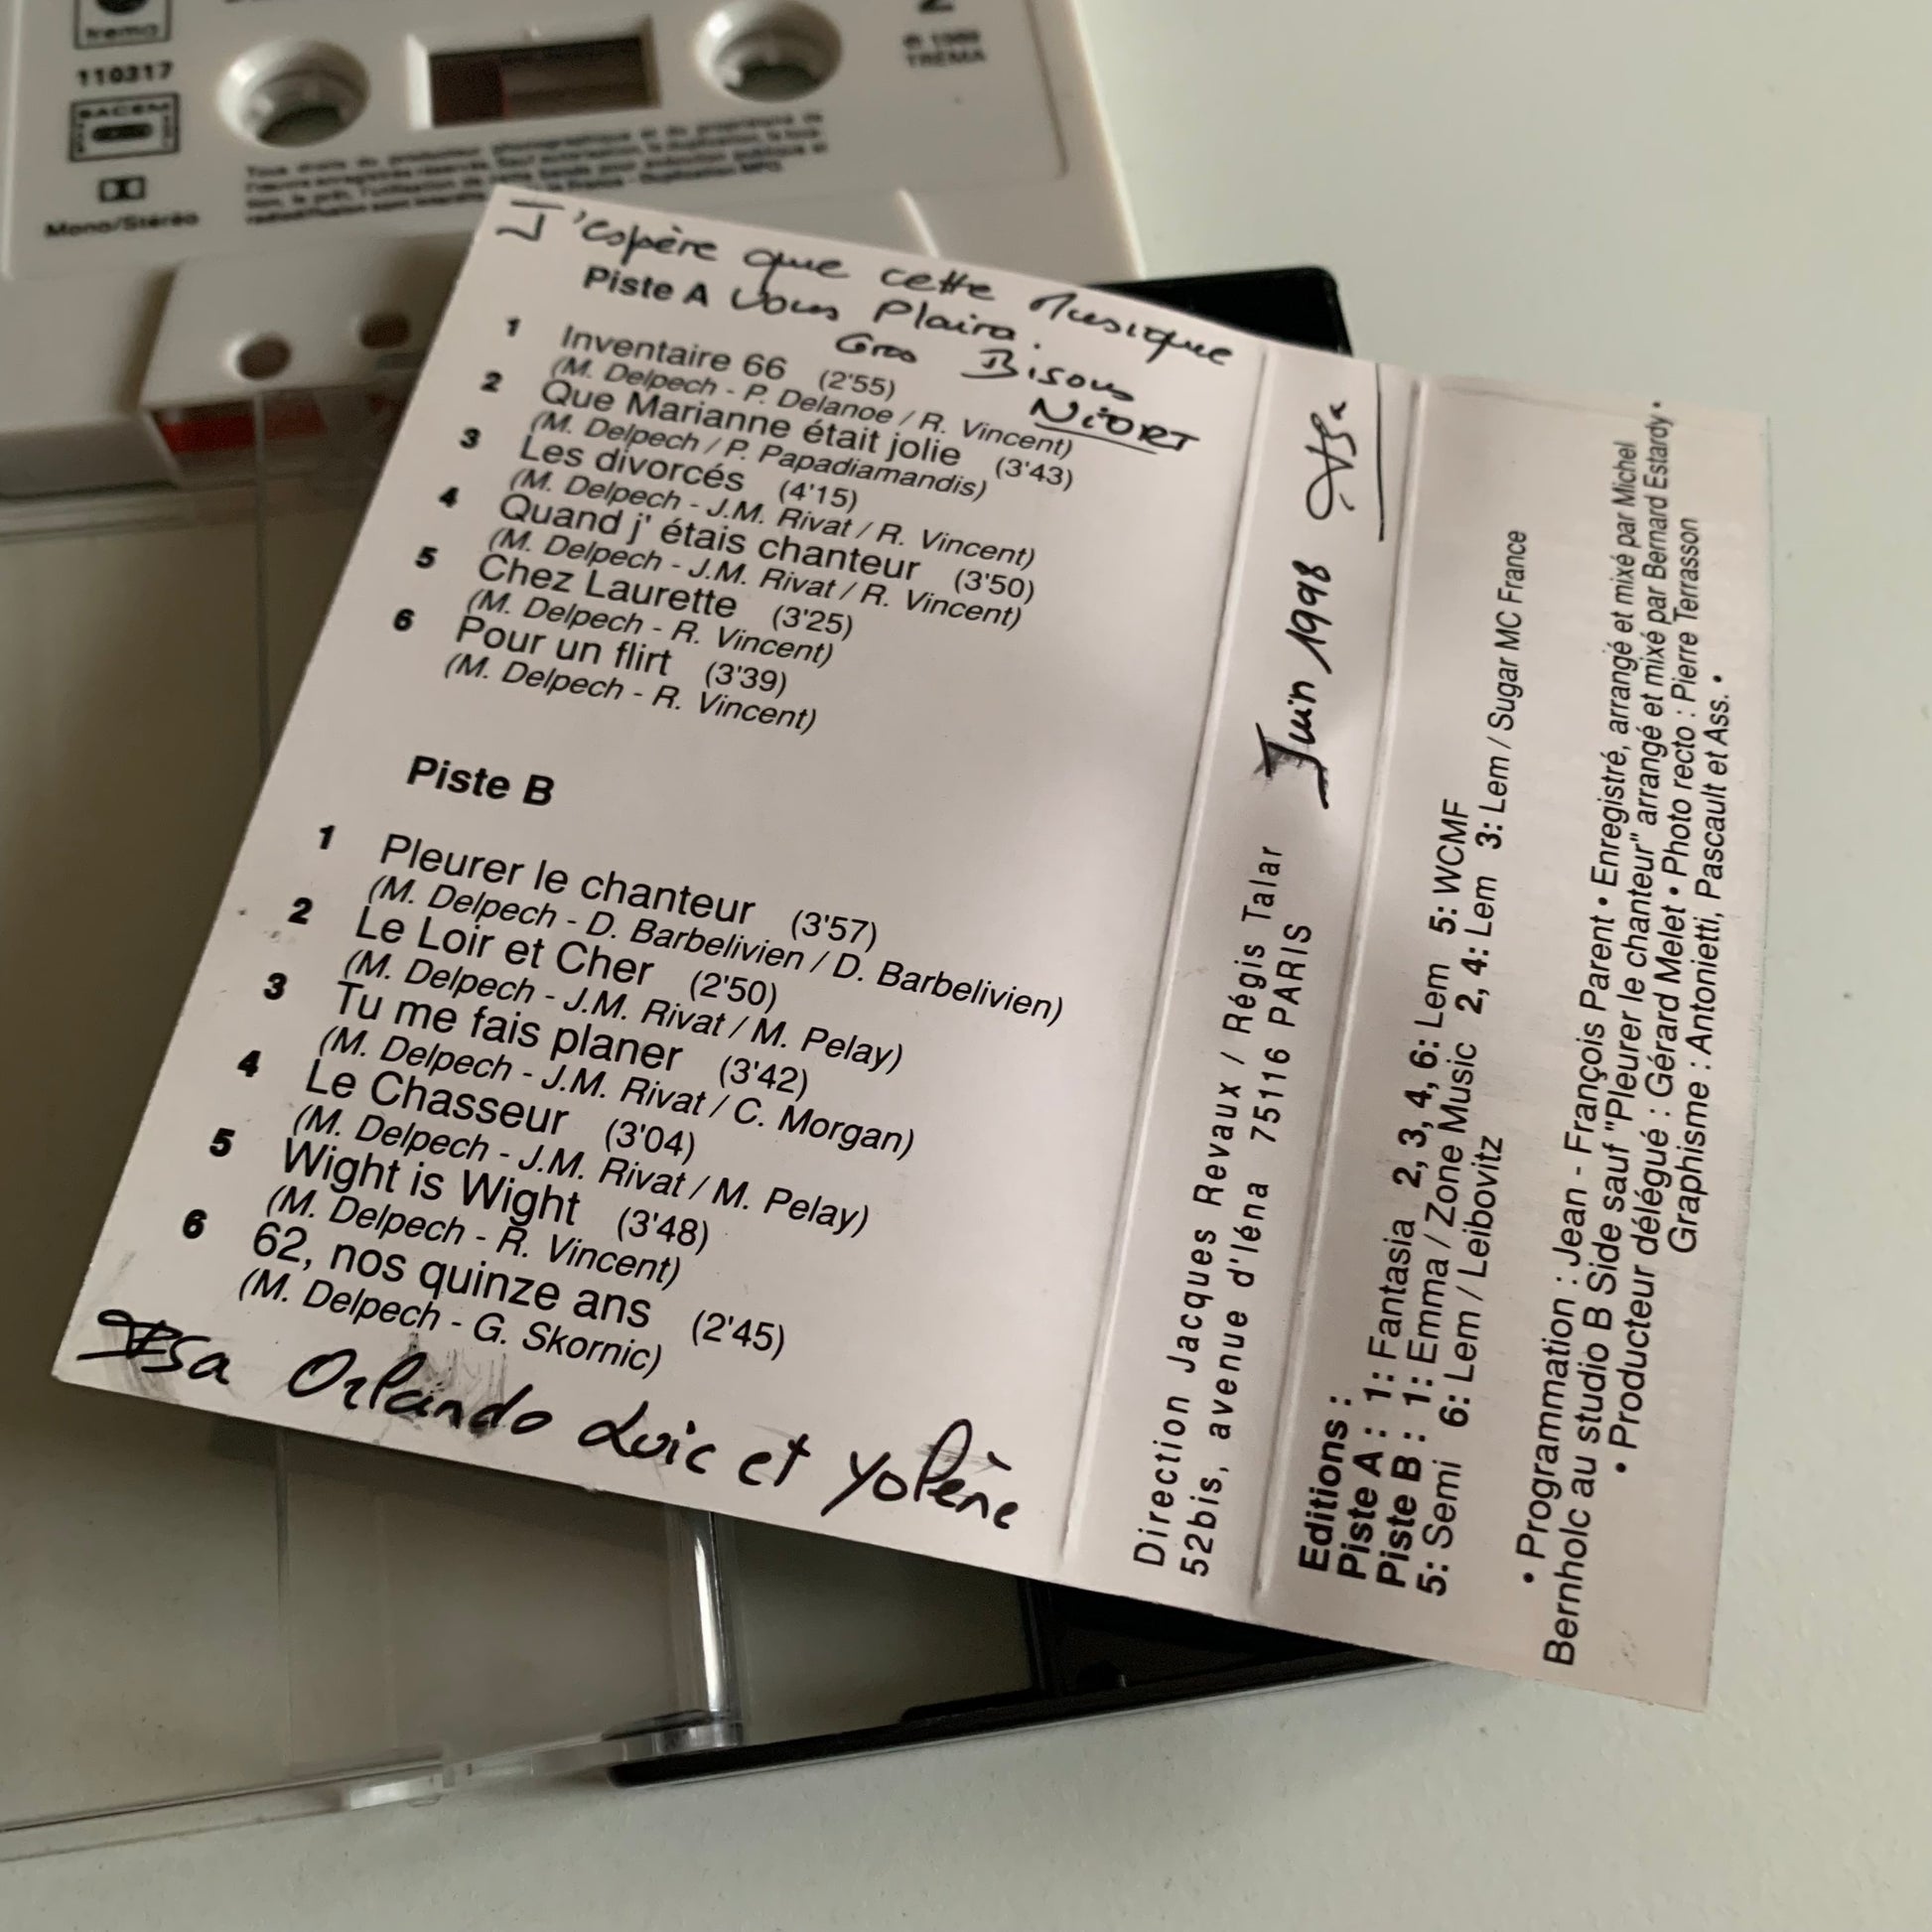 trema
110317
SACEM
Mono/Stéréo
2
℗ 1989
TREMA
J'espère que cette Musique
Piste A Vous Plaira.
Gros Bisous
NiORT
1 Inventaire 66 (2'55)
(M. Delpech - P. Delanoe / R. Vincent)
2 Que Marianne était jolie (3'43)
(M. Delpech / P. Papadiamandis)
3 Les divorcés (4'15)
(M. Delpech - J.M. Rivat / R. Vincent)
4 Quand j' étais chanteur (3'50)
(M. Delpech - J.M. Rivat / R. Vincent)
5 Chez Laurette (3'25)
(M. Delpech - R. Vincent)
6 Pour un flirt (3'39)
(M. Delpech - R. Vincent)
Piste B
1 Pleurer le chanteur (3'57)
(M. Delpech - D. Barbelivien / D. Barbelivien)
2 Le Loir et Cher (2'50)
(M. Delpech - J.M. Rivat / M. Pelay)
3 Tu me fais planer (3'42)
(M. Delpech - J.M. Rivat / C. Morgan)
4 Le Chasseur (3'04)
(M. Delpech - J.M. Rivat / M. Pelay)
5 Wight is Wight (3'48)
(M. Delpech - R. Vincent)
6 62, nos quinze ans (2'45)
(M. Delpech - G. Skornic)
Isa Orlando Loïc et Yolène
Direction Jacques Revaux / Régis Talar
52bis, avenue d'Iéna 75116 PARIS
Juin 1998 Isa
Editions :
Piste A : 1: Fantasia 2, 3, 4, 6: Lem 5: WCMF
Piste B : 1: Emma / Zone Music 2, 4: Lem 3: Lem / Sugar MC France
5: Semi 6: Lem / Leibovitz
• Programmation : Jean - François Parent • Enregistré, arrangé et mixé par Michel
Bernholc au studio B Side sauf "Pleurer le chanteur" arrangé et mixé par Bernard Estardy •
• Producteur délégué : Gérard Melet • Photo recto : Pierre Terrasson
Graphisme : Antonietti, Pascault et Ass. •